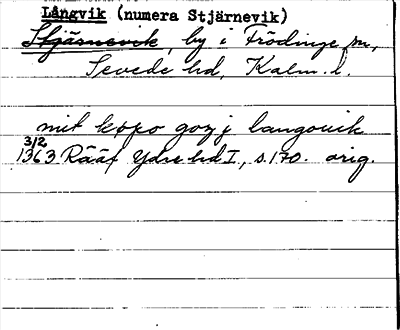 Långvik (numera Stjärnevik)
Stjärnevik, by i Frödinge sn,
Sevede hd, Kalm. l.
mit køpo gozj j langouik
3/2
1363 Rääf Ydre hd I, s. 170. orig.